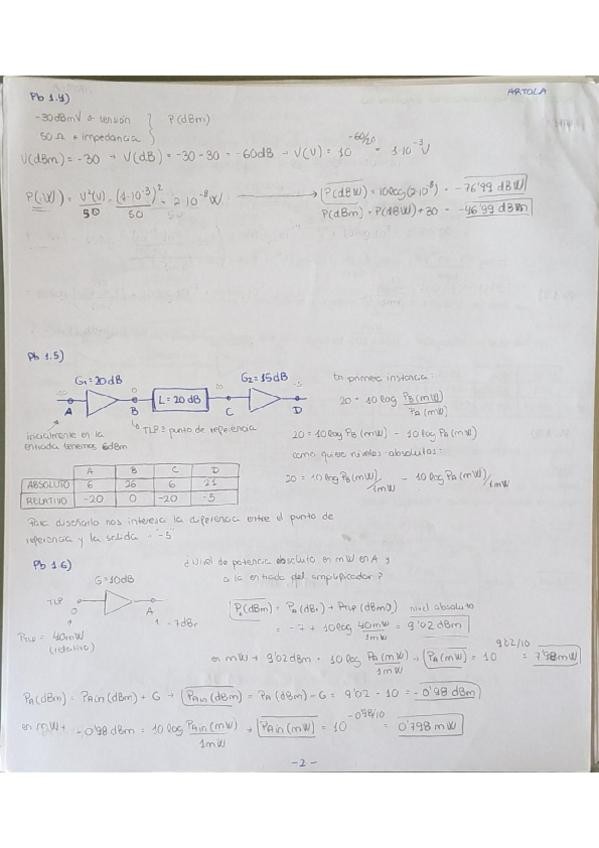 Pb 1.4)
ARTOLA
-30dBmV → tensión
50 Ω → impedancia
P(dBm)
V(dBm) = -30 → V(dB) = -30 - 30 = -60dB → V(V) = 10^(-60/20) = 1·10^-3 V
P(W) = V²(V)/50 = (1·10^-3)²/50 = 2·10^-8 W → P(dBW) = 10log(2·10^-8) = -76'99 dBW
P(dBm) = P(dBW) + 30 = -46'99 dBm
Pb 1.5)
G1 = 20dB
L = 20 dB
G2 = 15dB
A B C D
TLP = punto de referencia
inicialmente en la
entrada tenemos 6dBm
En primera instancia:
20 = 10 log PB(mW)/PA(mW)
20 = 10 log PB(mW) - 10 log PA(mW)
como quiere niveles absolutos:
20 = 10 log PB(mW)/1mW - 10 log PA(mW)/1mW
A B C D
ABSOLUTO 6 26 6 21
RELATIVO -20 0 -20 -5
Para diseñarlo nos interesa la diferencia entre el punto de
referencia y la salida = -5
Pb 1.6)
¿Nivel de potencia absoluto en mW en A y
a la entrada del amplificador?
G = 10dB
TLP
0
A
-7dBr
PTLP = 40mW
(relativo)
PA(dBm) = PA(dBr) + PTLP(dBm0) nivel absoluto
= -7 + 10log 40mW/1mW = 9'02 dBm
en mW → 9'02 dBm = 10 log PA(mW)/1mW → PA(mW) = 10^(9'02/10) = 7'98mW
PA(dBm) = PAin(dBm) + G → PAin(dBm) = PA(dBm) - G = 9'02 - 10 = -0'98 dBm
en mW → -0'98 dBm = 10 log PAin(mW)/1mW → PAin(mW) = 10^(-0'98/10) = 0'798 mW
-2-